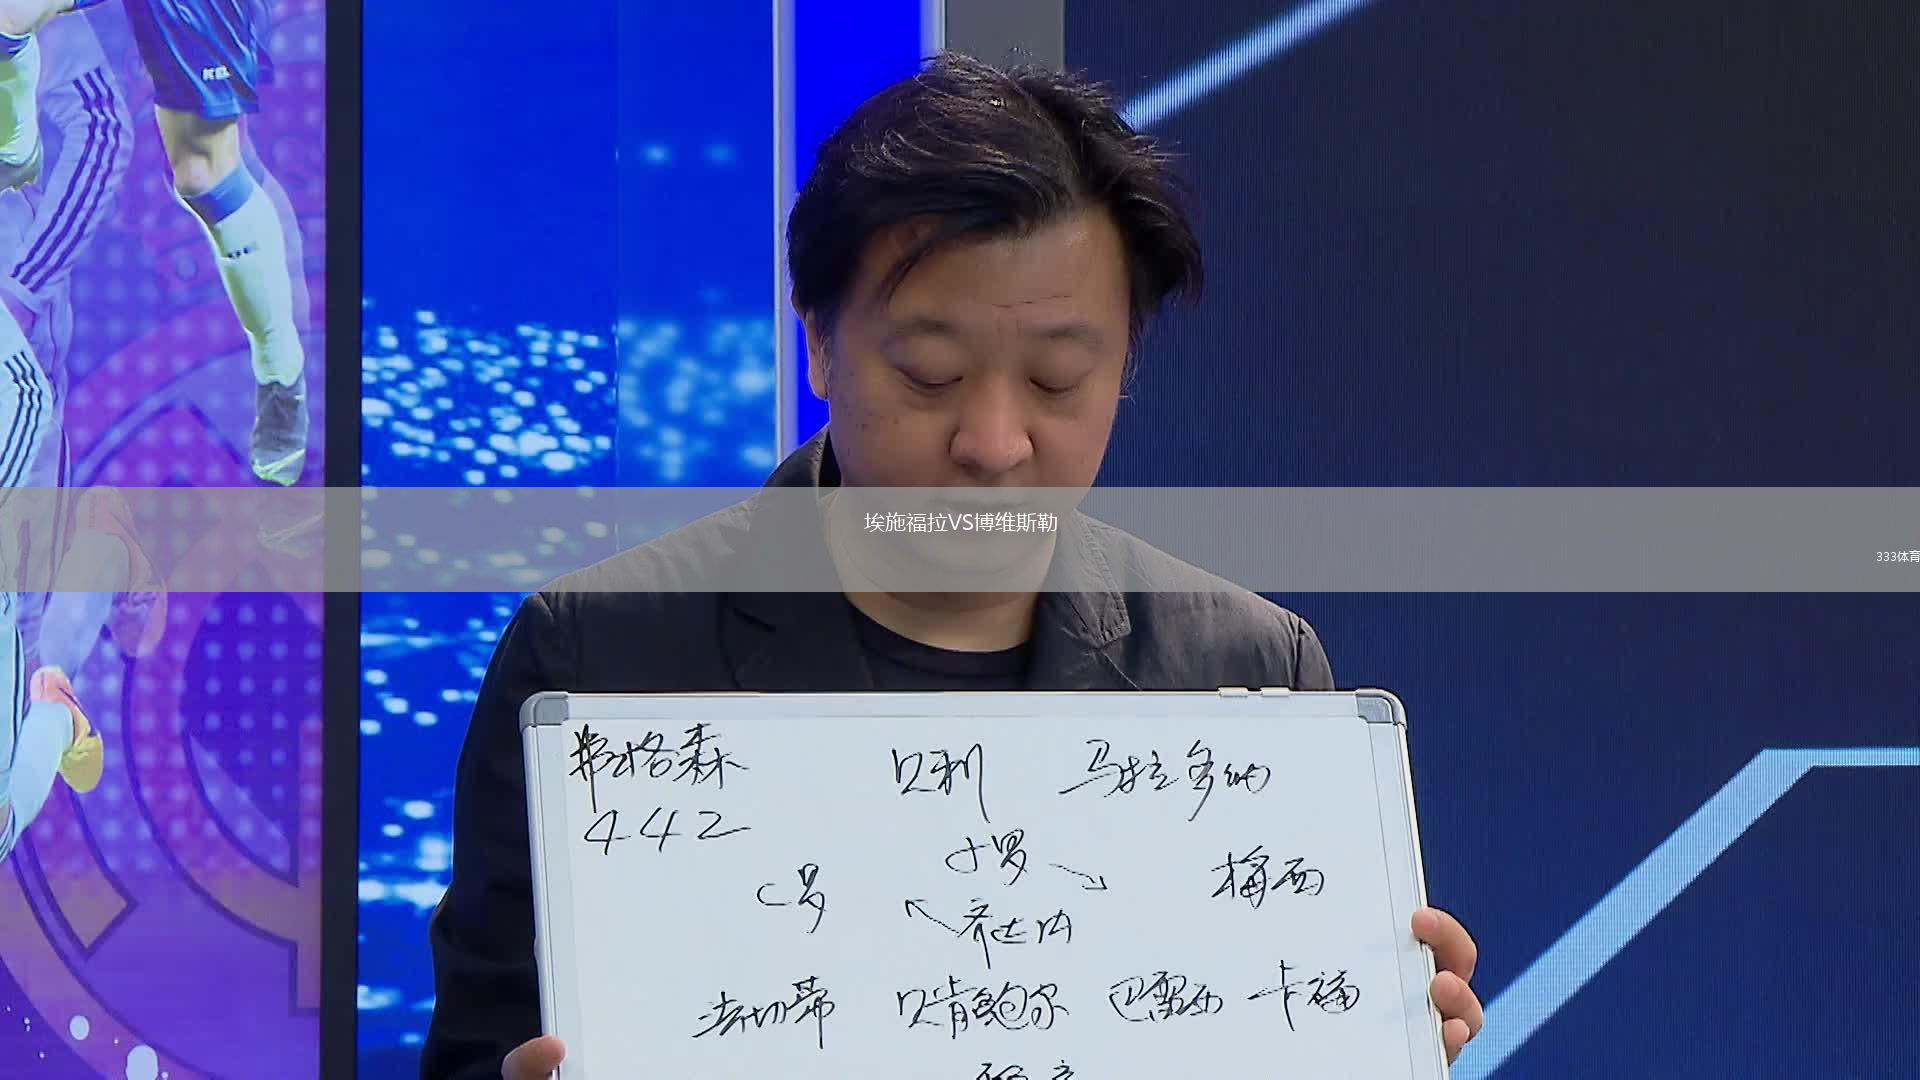 埃施福拉VS博维斯勒
333体育
弗格森 贝利 马拉多纳
442
小罗
C罗 梅西
齐达内
法切蒂 贝肯鲍尔 巴雷西 卡福